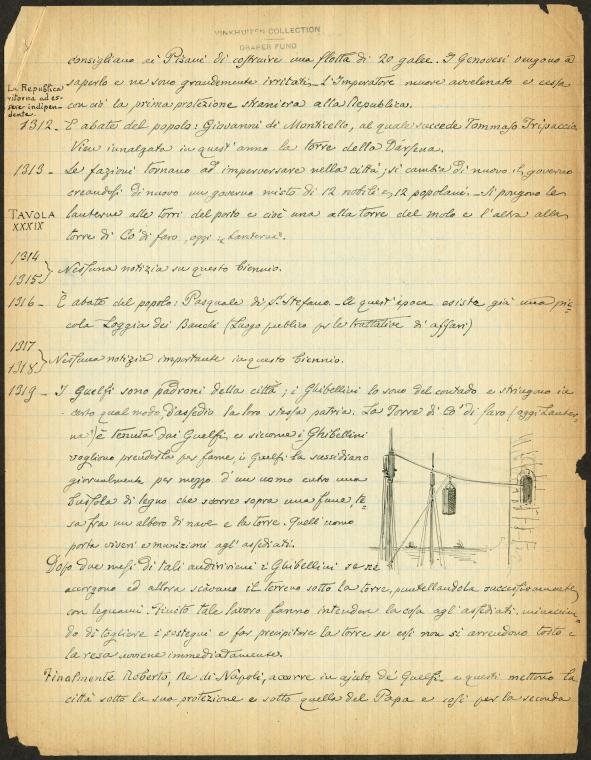 VINKHUIZEN COLLECTION
DRAPER FUND
consigliano ai Pisani di costruire una flotta di 20 galee. I Genovesi vengono a
saperlo e ne sono grandemente irritati. L'Imperatore muore avvelenato e cessa
con ciò la prima protezione straniera alla Repubblica.
La Repubblica
ritorna ad es-
sere indipen-
dente.
1312. È abate del popolo: Giovanni di Monticello, al quale succede Tommaso Tripaccio
Vien innalzata in quest'anno la torre della Darsena.
1313 - Le fazioni tornano ad imperversare nella città; si cambia di nuovo il governo
creandosi di nuovo un governo misto di 12 nobili e 12 popolani. - Si pongono le
TAVOLA
XXXIX
lanterne alle torri del porto e cioè una alla torre del molo e l'altra alla
torre di Co' di faro, oggi "Lanterna".
1314
1315 } Nessuna notizia su questo biennio.
1316 - È abate del popolo: Pasquale di S. Stefano. - A quest'epoca esiste già una pic-
cola Loggia dei Banchi (Luogo publico per le trattative di affari)
1317
1318 } Nessuna notizia importante in questo biennio.
1319 - I Guelfi sono padroni della città; i Ghibellini lo sono del contado e stringono in
certo qual modo d'assedio la loro stessa patria. La Torre di Co' di faro (oggi Lanter-
na) è tenuta dai Guelfi, e siccome i Ghibellini
vogliono prenderla per fame, i Guelfi la sussidiano
giornalmente per mezzo d'un uomo entro una
bussola di legno che scorre sopra una fune, te-
sa fra un albero di nave e la torre. Quell'uomo
porta viveri e munizioni agl'assediati.
Dopo due mesi di tali andirivieni i Ghibellini se ne
accorgono ed allora scavano il terreno sotto la torre, puntellandola successivamente
con legnami. Finito tale lavoro fanno intendere la cosa agl'assediati, minaccian-
do di togliere i sostegni e far precipitare la torre se essi non si arrendono tosto e
la resa avviene immediatamente.
Finalmente Roberto, Re di Napoli, accorre in ajuto de' Guelfi e questi mettono la
città sotto la sua protezione e sotto quella del Papa e così per la seconda